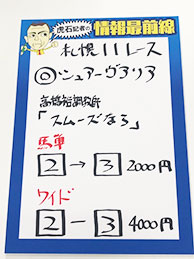 虎石記者の
情報最前線
札幌11レース
◎シュアーヴアリア
高橋裕調教師
「スムーズなら」
馬単
2→3 2000円
ワイド
2-3 4000円